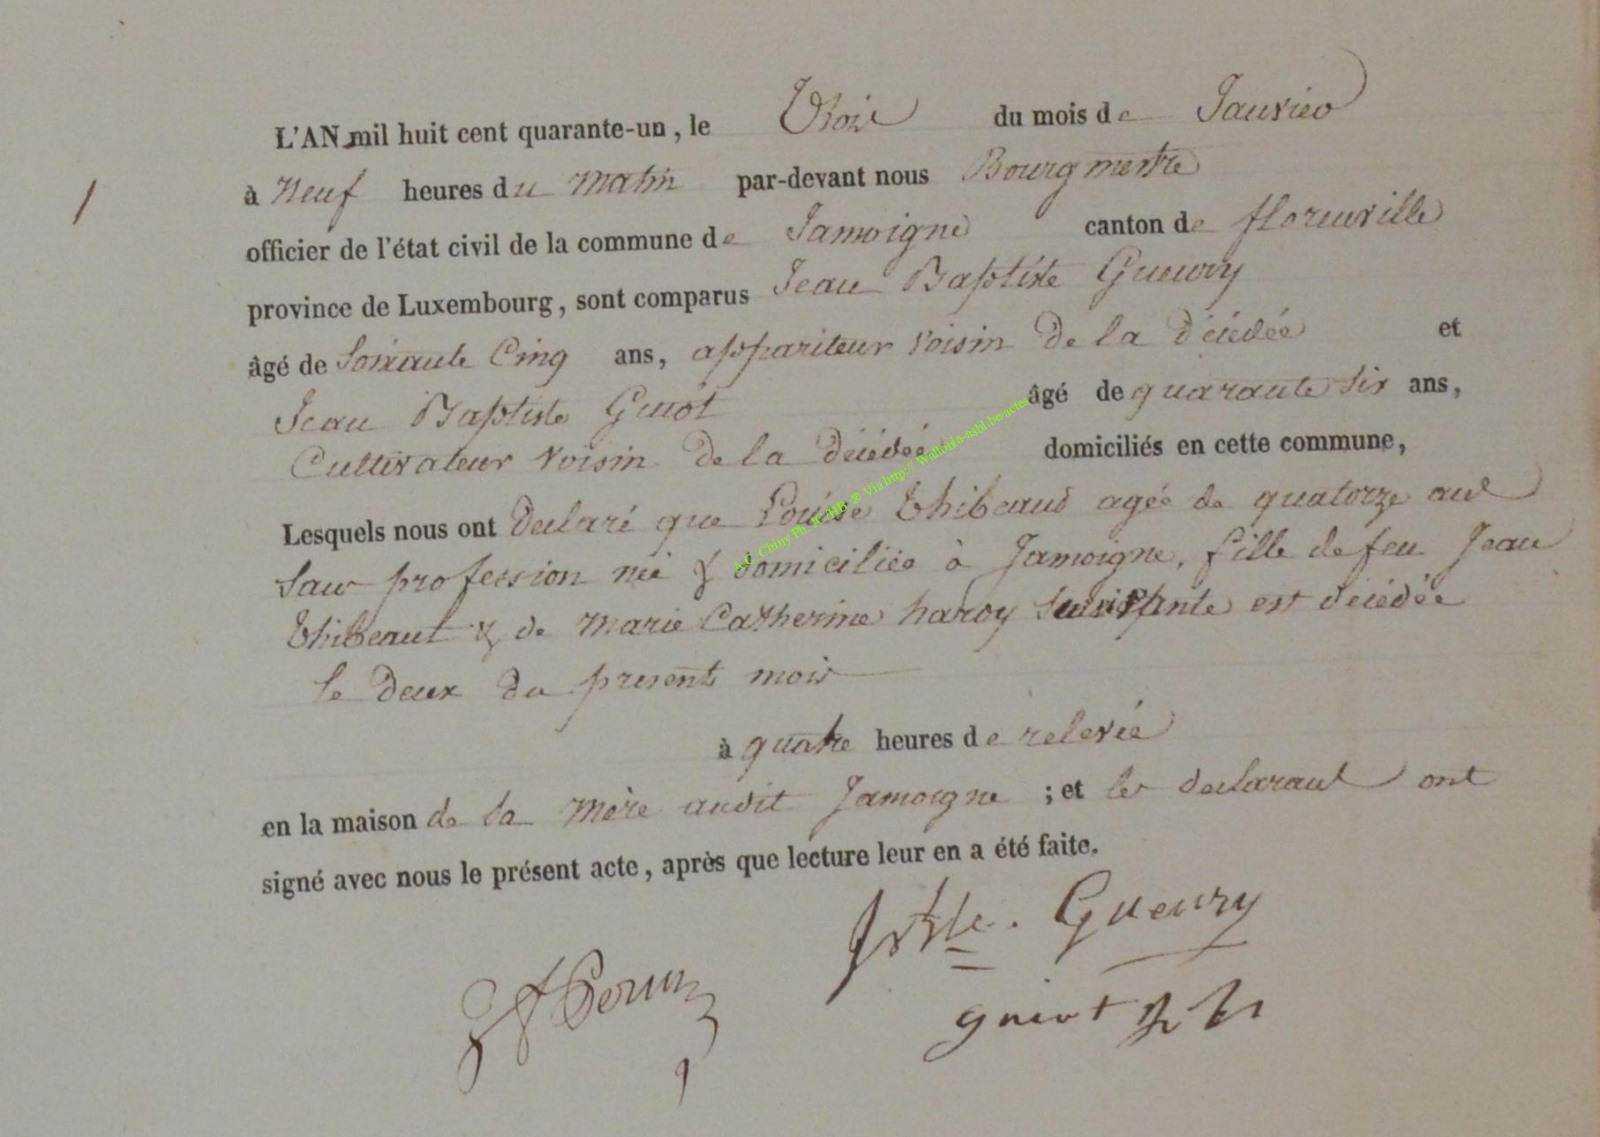 L'AN mil huit cent quarante-un, le Trois du mois de Janvier
1
à Neuf heures du Matin par-devant nous Bourgmestre
officier de l'état civil de la commune de Jamoigne canton de florenville
province de Luxembourg, sont comparus Jean Baptiste Gueury
âgé de Soixante Cinq ans, appariteur voisin de la décédée et
Jean Baptiste Guiot âgé de quarante six ans,
Cultivateur voisin de la décédée domiciliés en cette commune,
Lesquels nous ont declaré que Louise Thibeaud agée de quatorze ans
Sans profession née & domiciliée à Jamoigne, fille de feu Jean
Thibeaut & de Marie Catherine hardy est décédée
le deux du present mois
à quatre heures de relevée
en la maison de la Mère audit Jamoigne ; et les declarant ont
signé avec nous le présent acte, après que lecture leur en a été faite.
Gueury
guiot